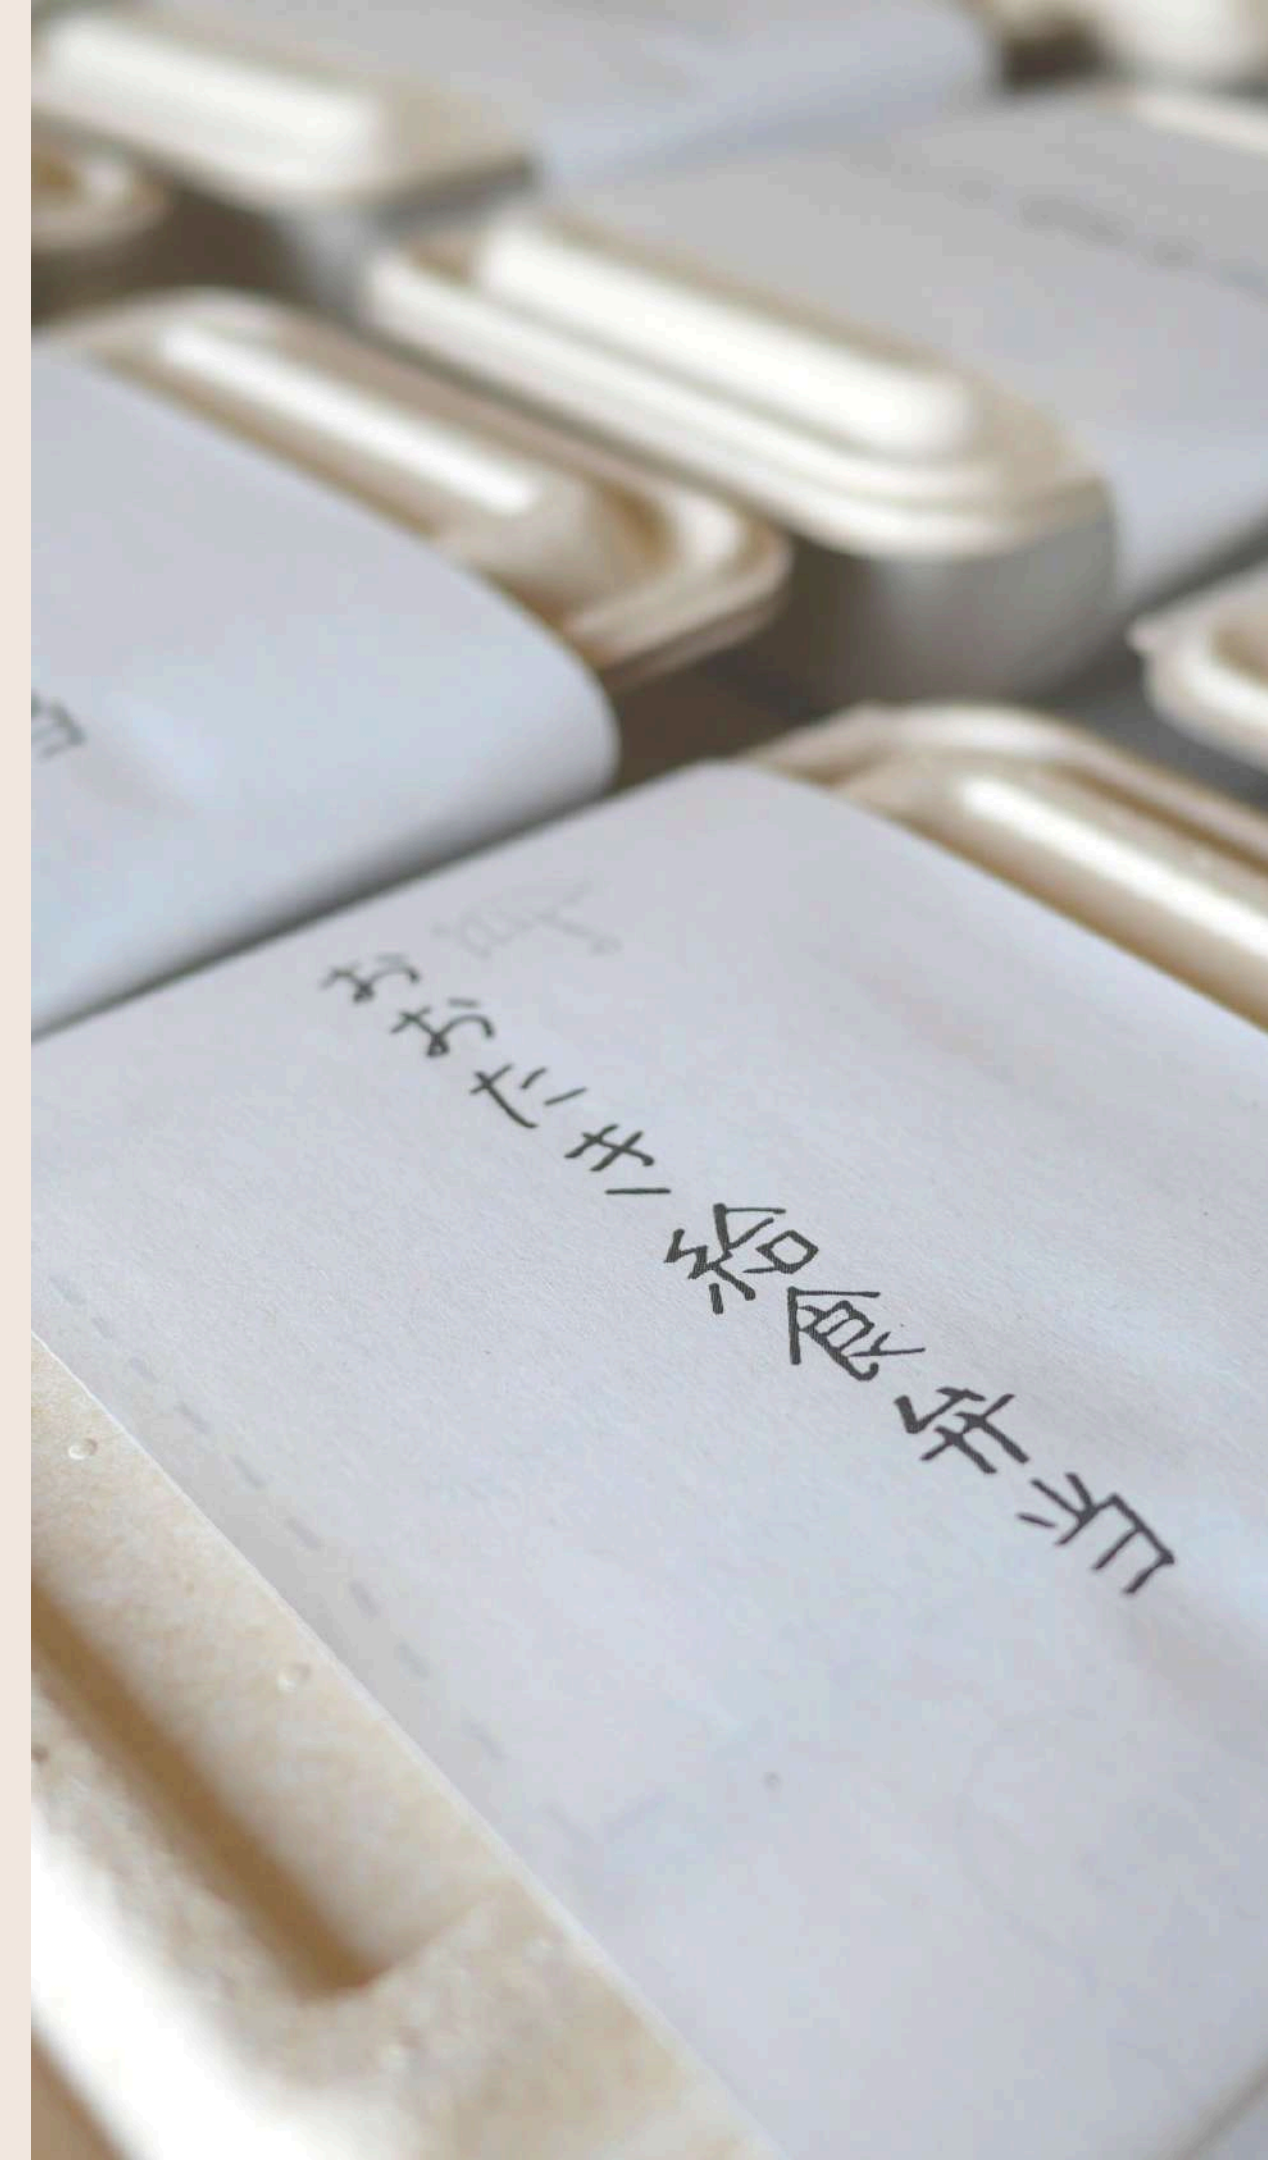 おおたき給食弁当